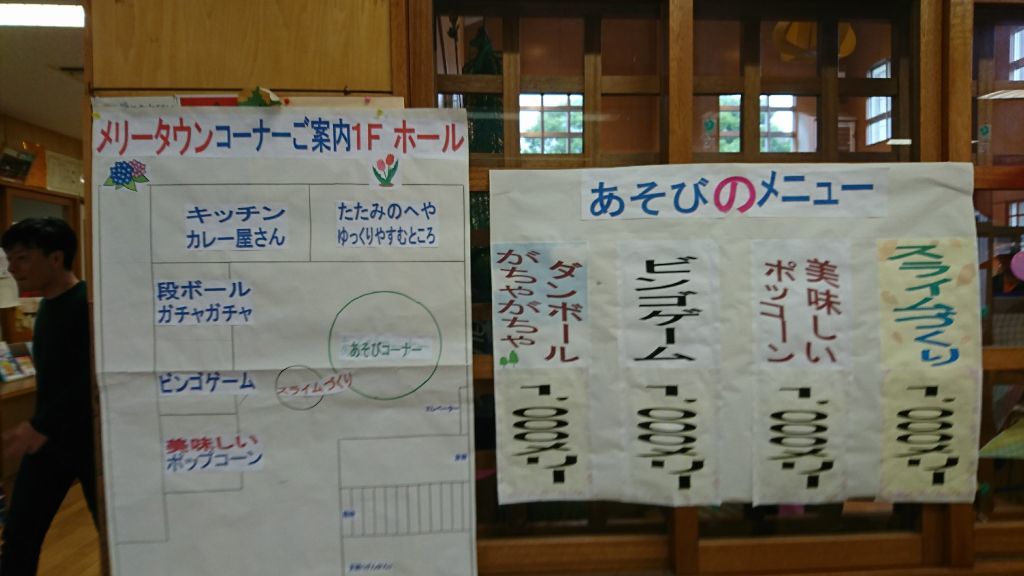 メリータウンコーナーご案内1F ホール
キッチン
カレー屋さん
たたみのへや
ゆっくりやすむところ
段ボール
ガチャガチャ
あそびコーナー
ビンゴゲーム
スライムづくり
美味しい
ポップコーン
エレベーター
あそびのメニュー
スライムづくり
1,000メリー
美味しい
ポップコーン
1,000メリー
ビンゴゲーム
1,000メリー
ダンボール
がちゃがちゃ
1,000メリー